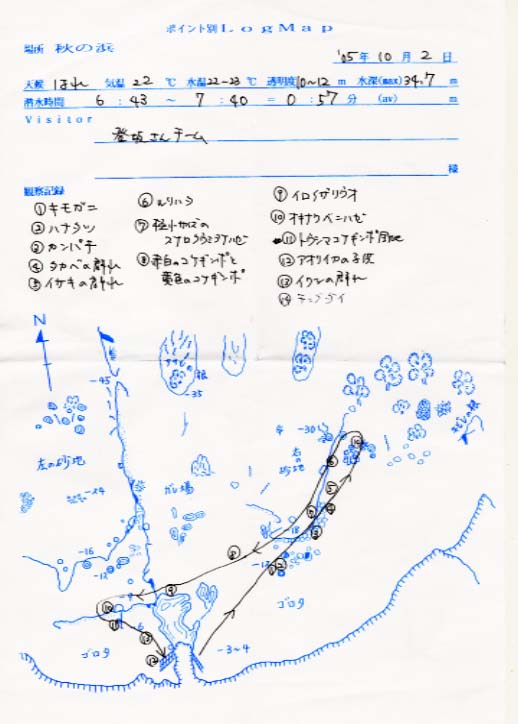 ポイント別 LogMap
場所 秋の浜
'05年 10月 2日
天候 はれ 気温 22 ℃ 水温 22-23 ℃ 透明度 10~12 m 水深(max) 34.7 m
潜水時間 6 : 43 ~ 7 : 40 = 0 : 57 分 (av) m
Visitor
登坂さんチーム
様
観察記録
①キモガニ
②ハナタツ
③カンパチ
④タカベの群れ
⑤イサキの群れ
⑥ルリハタ
⑦極小サイズの
スナロクラミアナハゼ
⑧赤白のコケギンポと
黄色のコケギンポ
⑨イロイザリウオ
⑩オキナワベニハゼ
⑪トウシマコケギンポ
⑫アオリイカの
⑬イワシの群れ
⑭テングダイ
N
-45
根
-35
-30
右の砂地
左の砂地
-24
ガレ場
-18
-16
-12
-12
9
6
ゴロタ
ゴロタ
-3~4